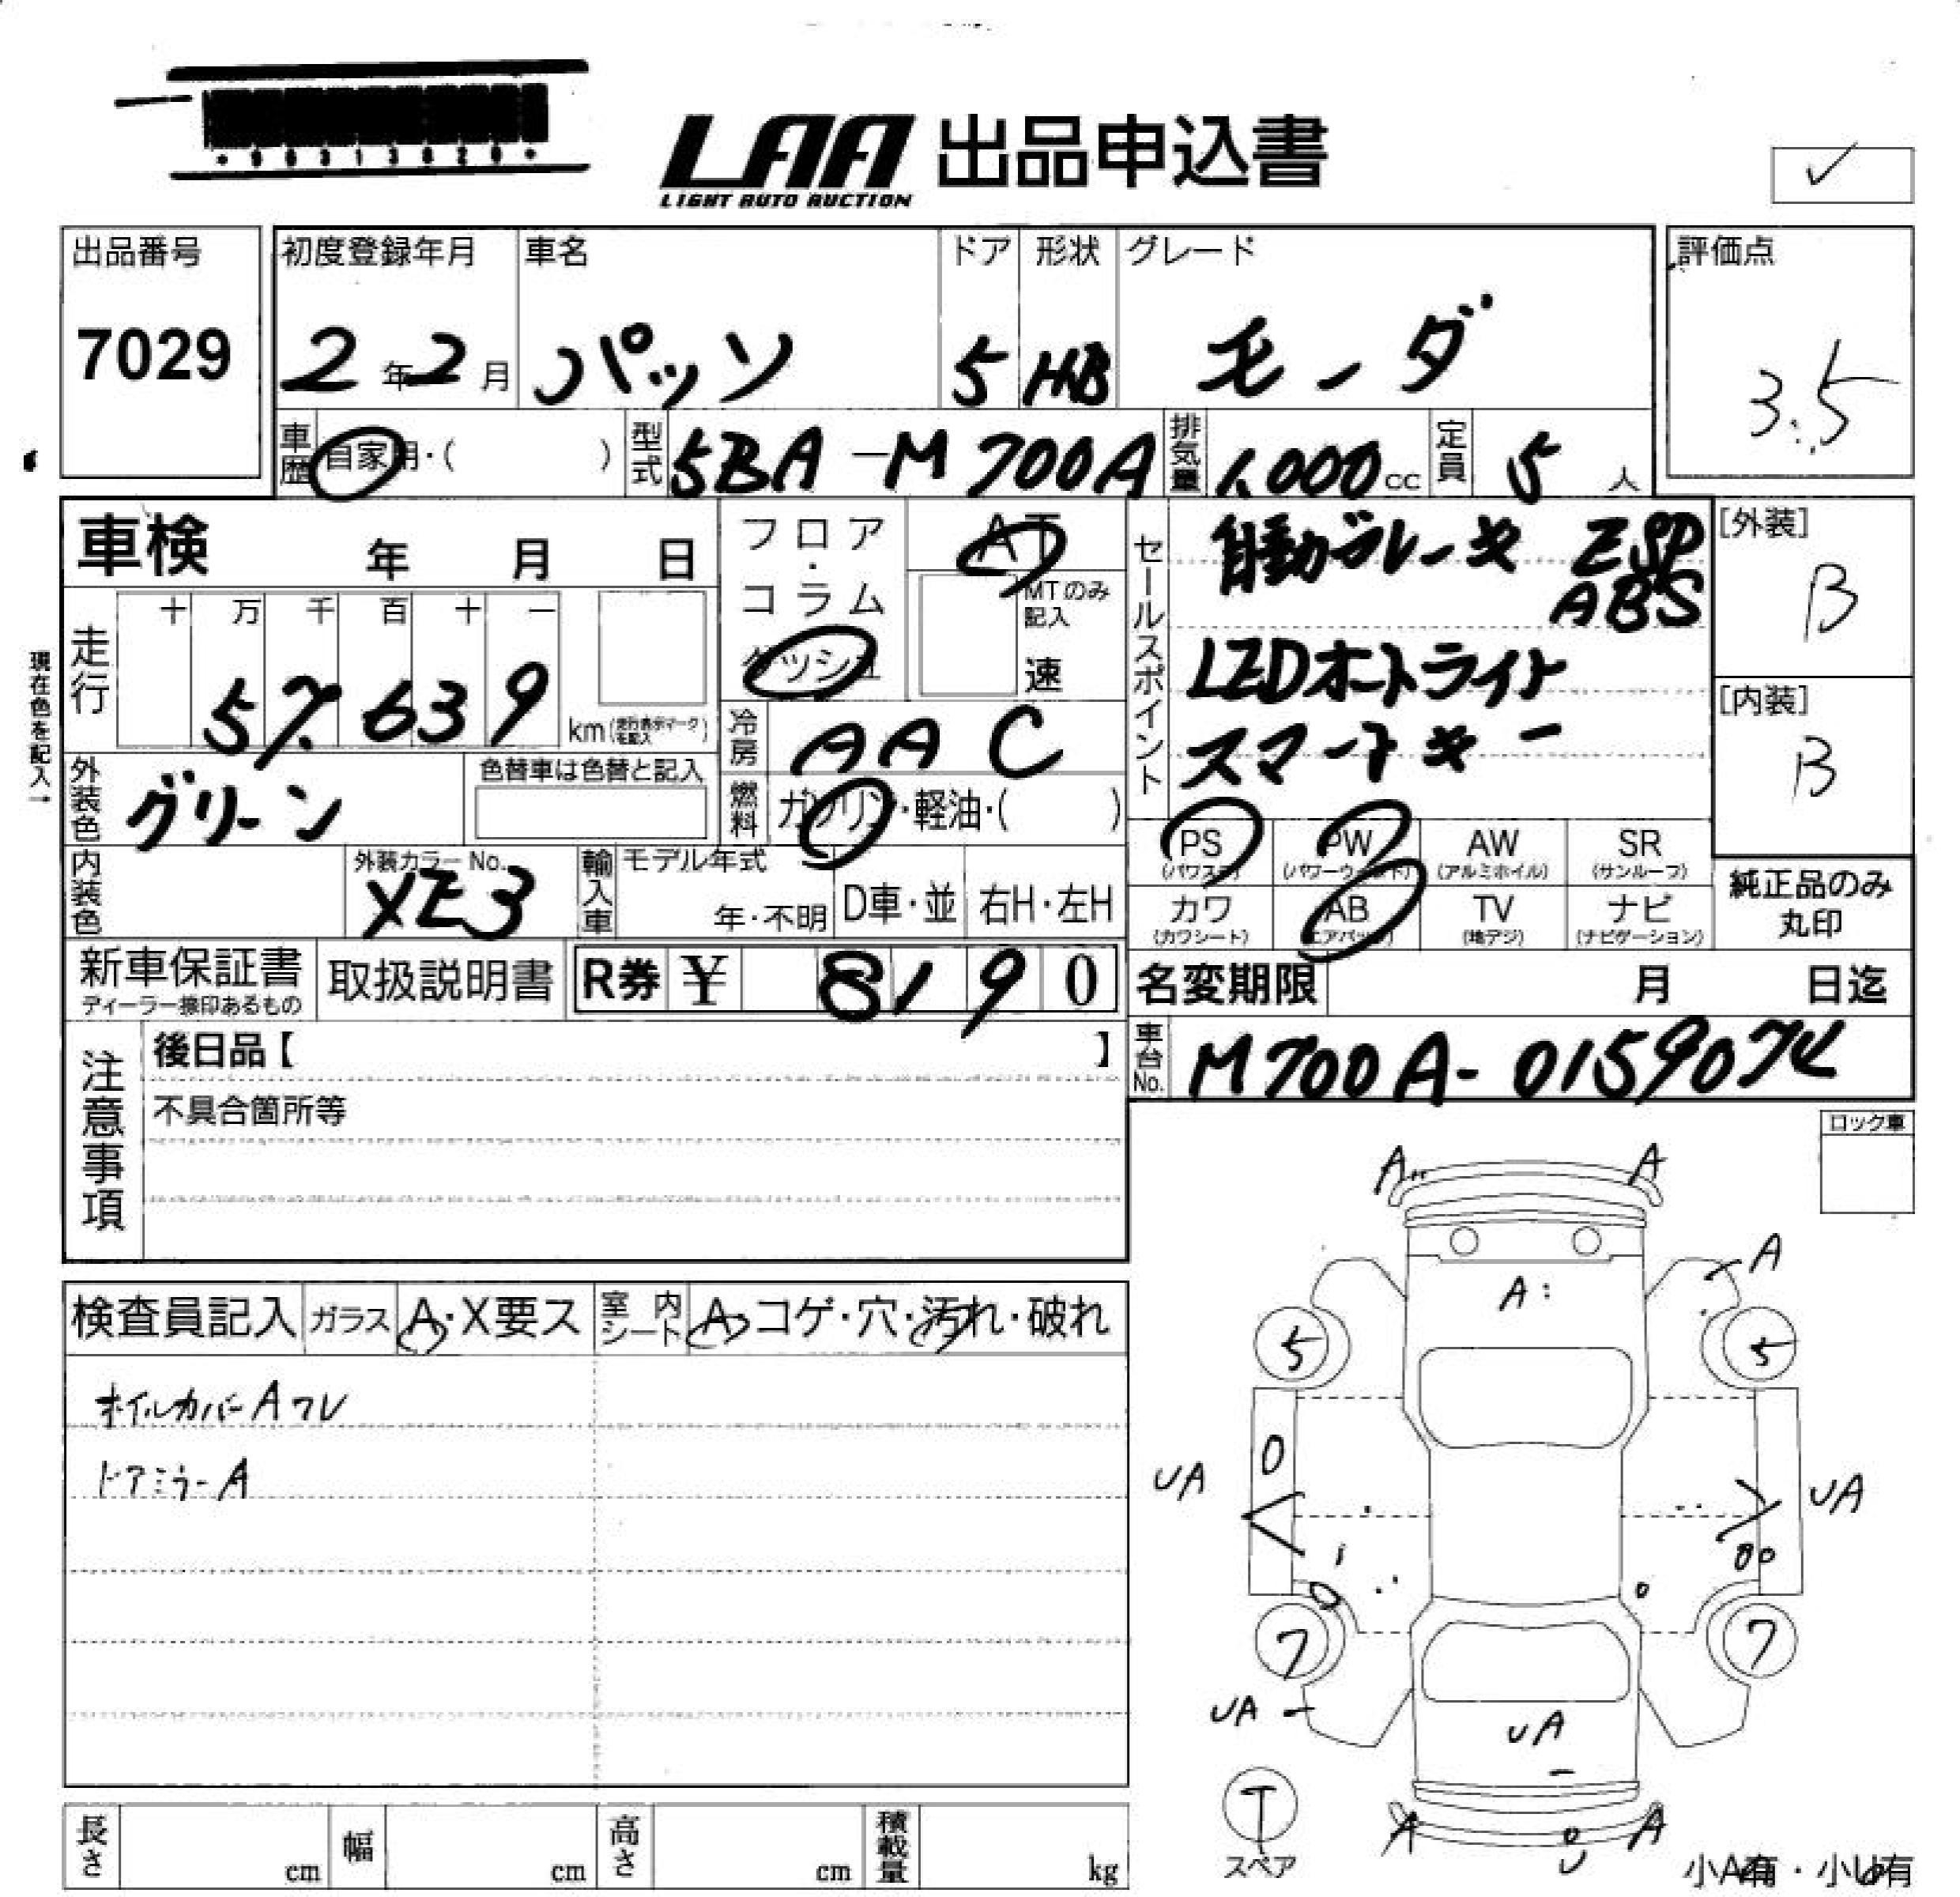 LAA 出品申込書
LIGHT AUTO AUCTION
✓
出品番号
7029
初度登録年月
2年2月
車名
パッソ
ドア
5
形状
HB
グレード
モーダ
評価点
3.5
車歴 自家用・( )
型式 5BA-M700A
排気量 1,000cc
定員 5人
車検 年 月 日
フロア・コラム
ダッシュ
AT
MTのみ記入
速
セールスポイント
自動ブレーキ ESP
ABS
LEDオートライト
スマートキー
[外装]
B
[内装]
B
現在色を記入→
走行
十 万 千 百 十 一
57,639
km(走行表示マークを記入)
冷房 AAC
燃料 ガソリン・軽油・( )
外装色 グリーン
色替車は色替と記入
内装色
外装カラーNo.
XE3
輸入車
モデル年式
年・不明
D車・並
右H・左H
PS
(パワステ)
PW
(パワーウィンド)
AW
(アルミホイル)
SR
(サンルーフ)
カワ
(カワシート)
AB
(エアバッグ)
TV
(地デジ)
ナビ
(ナビゲーション)
純正品のみ
丸印
新車保証書
ディーラー捺印あるもの
取扱説明書
R券 ¥ 8190
名変期限 月 日迄
車台No. M700A-0159074
注意事項
後日品【 】
不具合箇所等
ロック車
検査員記入
ガラス A・X要ス
室内シート A・コゲ・穴・汚れ・破れ
ホイルカバーAワレ
ドアミラーA
A
A
A
A
5
5
UA
UA
7
7
UA
UA
T
スペア
A
U
A
小A有・小U有
長さ cm
幅 cm
高さ cm
積載量 kg